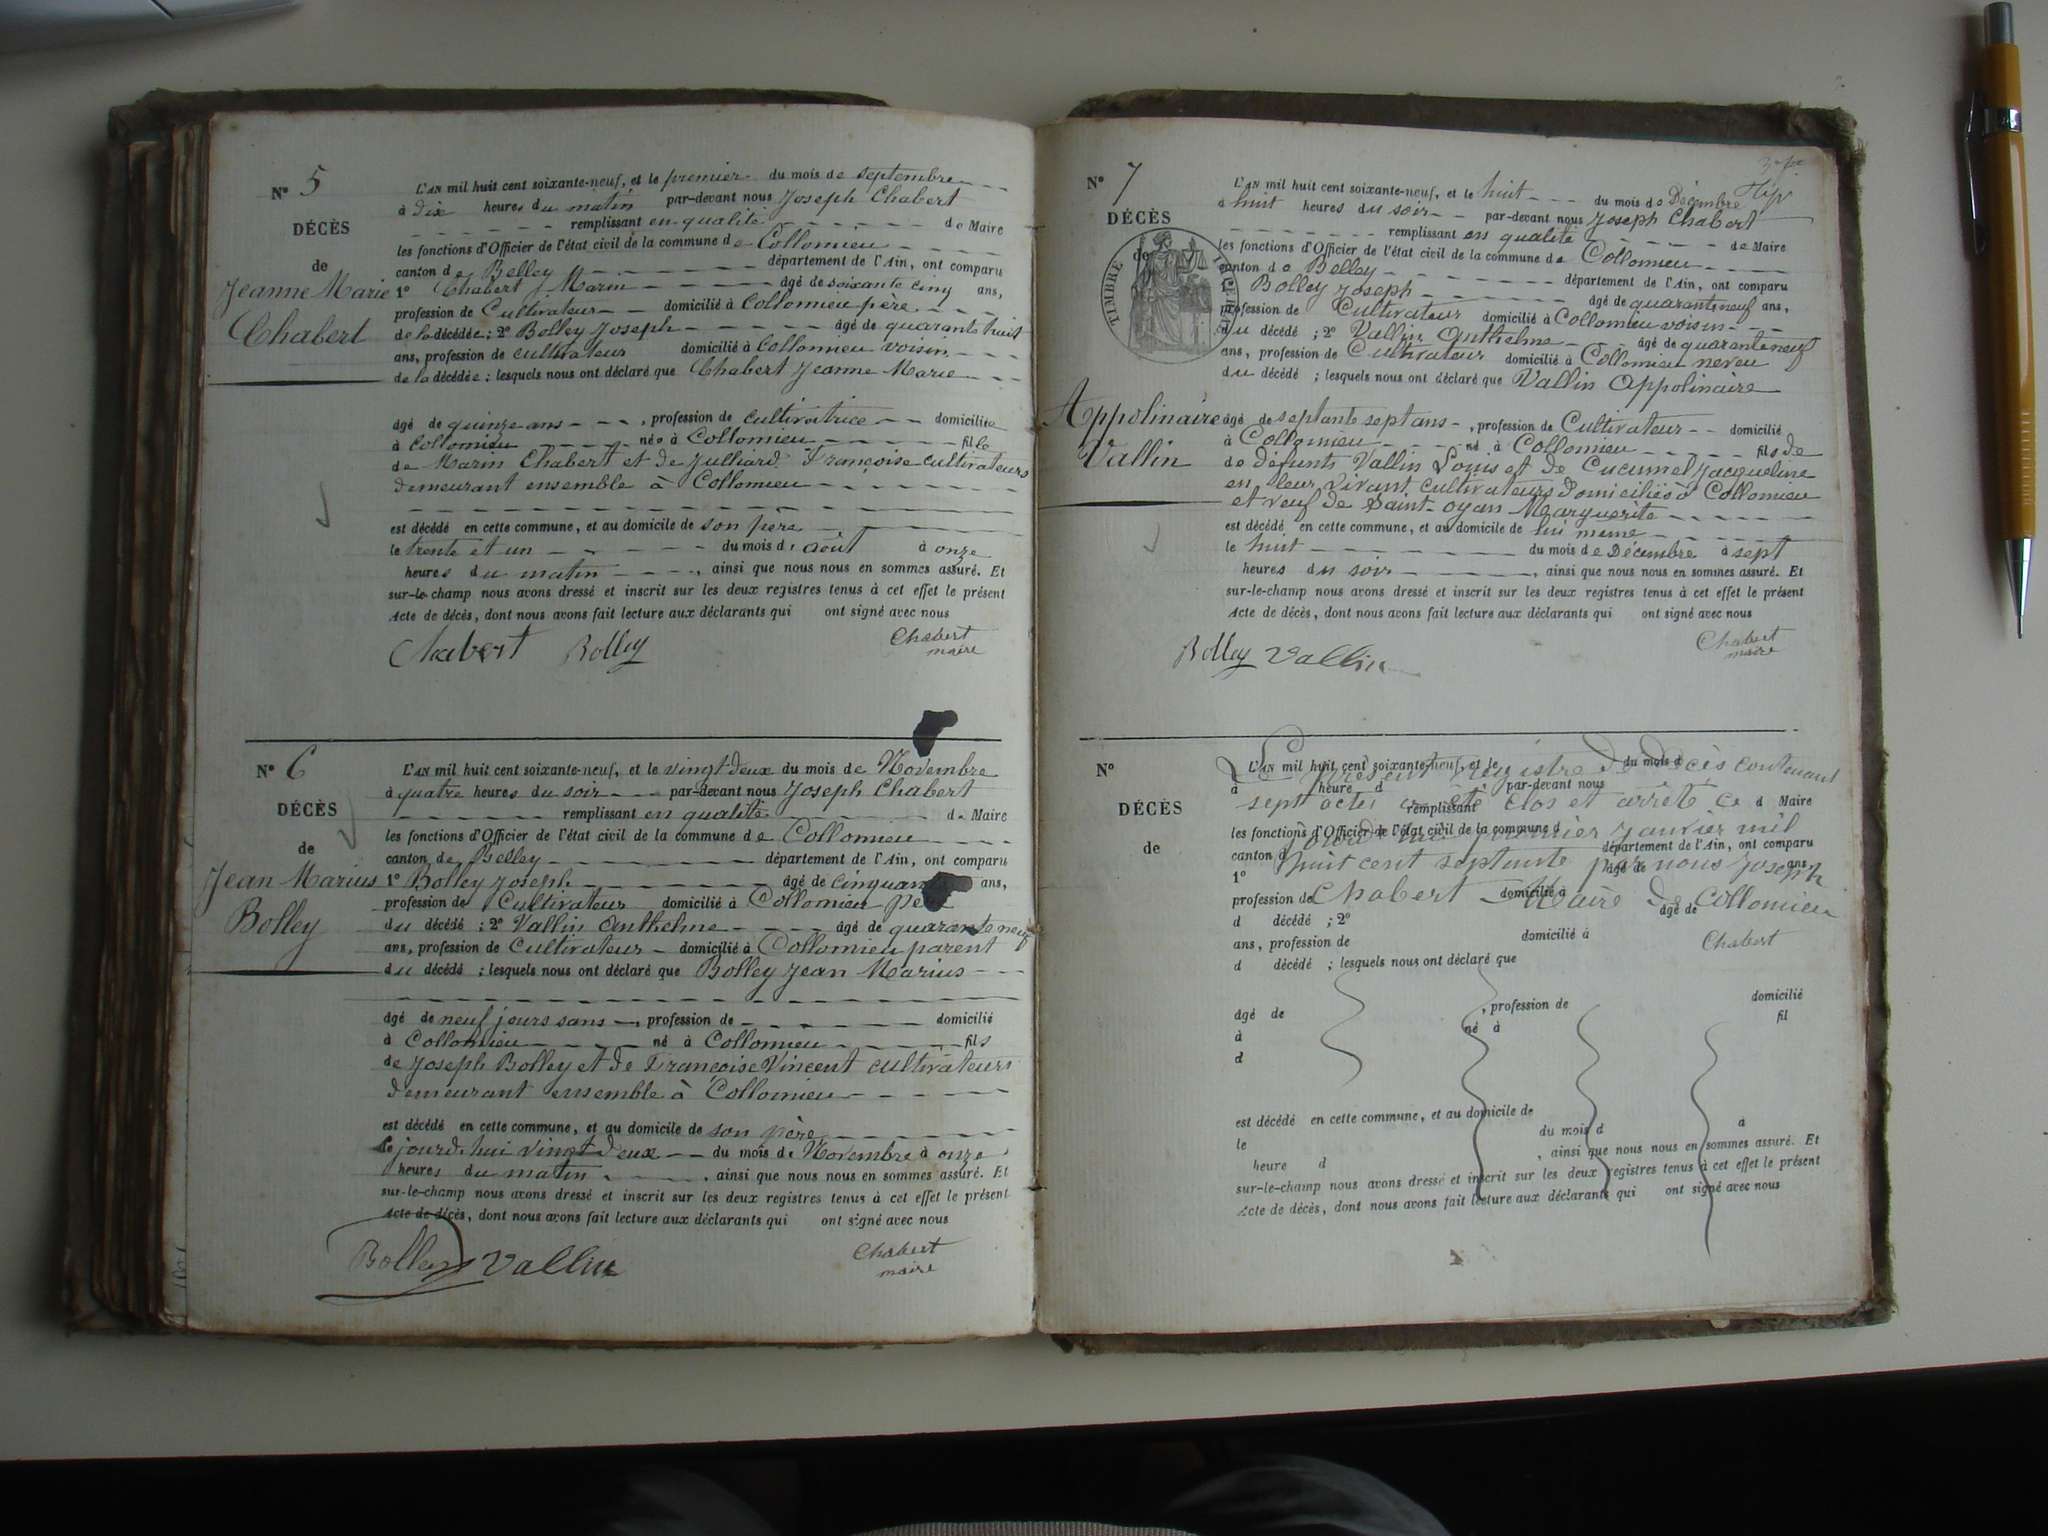 N° 5
DÉCÈS
de
Jeanne Marie
Chabert
L'AN mil huit cent soixante-neuf, et le premier du mois de septembre
à dix heures du matin par-devant nous Joseph Chabert
remplissant en qualité de Maire
les fonctions d'Officier de l'état civil de la commune de Collomieu
canton de Belley département de l'Ain, ont comparu
1° Chabert Marin âgé de soixante cinq ans,
profession de Cultivateur domicilié à Collomieu père
de la décédée ; 2° Bolley Joseph âgé de quarante huit
ans, profession de cultivateur domicilié à Collomieu voisin
de la décédée ; lesquels nous ont déclaré que Chabert Jeanne Marie
âgé de quinze ans, profession de cultivatrice domiciliée
à Collomieu née à Collomieu fille
de Marin Chabert et de Julliard Françoise cultivateurs
demeurant ensemble à Collomieu
est décédé en cette commune, et au domicile de son père
le trente et un du mois d'août à onze
heures du matin, ainsi que nous nous en sommes assuré. Et
sur-le-champ nous avons dressé et inscrit sur les deux registres tenus à cet effet le présent
Acte de décès, dont nous avons fait lecture aux déclarants qui ont signé avec nous
Chabert Bolley Chabert
maire
N° 6
DÉCÈS
de
Jean Marius
Bolley
L'AN mil huit cent soixante-neuf, et le vingt deux du mois de Novembre
à quatre heures du soir par-devant nous Joseph Chabert
remplissant en qualité de Maire
les fonctions d'Officier de l'état civil de la commune de Collomieu
canton de Belley département de l'Ain, ont comparu
1° Bolley Joseph âgé de cinquante ans,
profession de Cultivateur domicilié à Collomieu père
du décédé ; 2° Vallin Anthelme âgé de quarante neuf
ans, profession de Cultivateur domicilié à Collomieu parent
du décédé ; lesquels nous ont déclaré que Bolley Jean Marius
âgé de neuf jours sans, profession de domicilié
à Collomieu né à Collomieu fils
de Joseph Bolley et de Françoise Vincent cultivateurs
demeurant ensemble à Collomieu
est décédé en cette commune, et au domicile de son père
le jourd'hui vingt deux du mois de Novembre à onze
heures du matin, ainsi que nous nous en sommes assuré. Et
sur-le-champ nous avons dressé et inscrit sur les deux registres tenus à cet effet le présent
Acte de décès, dont nous avons fait lecture aux déclarants qui ont signé avec nous
Bolley Vallin Chabert
maire
N° 7
DÉCÈS
de
TIMBRE
Appolinaire
Vallin
L'AN mil huit cent soixante-neuf, et le huit du mois de Décembre
à huit heures du soir par-devant nous Joseph Chabert
remplissant en qualité de Maire
les fonctions d'Officier de l'état civil de la commune de Collomieu
canton de Belley département de l'Ain, ont comparu
Bolley Joseph âgé de quarante neuf ans,
profession de Cultivateur domicilié à Collomieu voisin
du décédé ; 2° Vallin Anthelme âgé de quarante neuf
ans, profession de Cultivateur domicilié à Collomieu neveu
du décédé ; lesquels nous ont déclaré que Vallin Appolinaire
âgé de septante sept ans, profession de Cultivateur domicilié
à Collomieu né à Collomieu fils de
de défunts Vallin Louis et de Cucumel Jacqueline
en leur vivant cultivateurs domiciliés à Collomieu
et veuf de Saint-oyan Marguerite
est décédé en cette commune, et au domicile de lui même
le huit du mois de Décembre à sept
heures du soir, ainsi que nous nous en sommes assuré. Et
sur-le-champ nous avons dressé et inscrit sur les deux registres tenus à cet effet le présent
Acte de décès, dont nous avons fait lecture aux déclarants qui ont signé avec nous
Bolley Vallin Chabert
maire
N°
DÉCÈS
de
L'AN mil huit cent soixante-neuf, et le du mois d
Le présent registre de décès contenant
à heure d par-devant nous
sept actes a été clos et arrêté ce
remplissant d Maire
les fonctions d'Officier de l'état civil de la commune d
jourd'hui premier janvier mil
canton d département de l'Ain, ont comparu
huit cent septante par nous Joseph
1° âgé de ans,
profession de domicilié à
Chabert Maire de Collomieu
d décédé ; 2° âgé de
ans, profession de domicilié à
Chabert
d décédé ; lesquels nous ont déclaré que
âgé de , profession de domicilié
à né à fil
d
est décédé en cette commune, et au domicile de
le du mois d à
heure d , ainsi que nous nous en sommes assuré. Et
sur-le-champ nous avons dressé et inscrit sur les deux registres tenus à cet effet le présent
Acte de décès, dont nous avons fait lecture aux déclarants qui ont signé avec nous